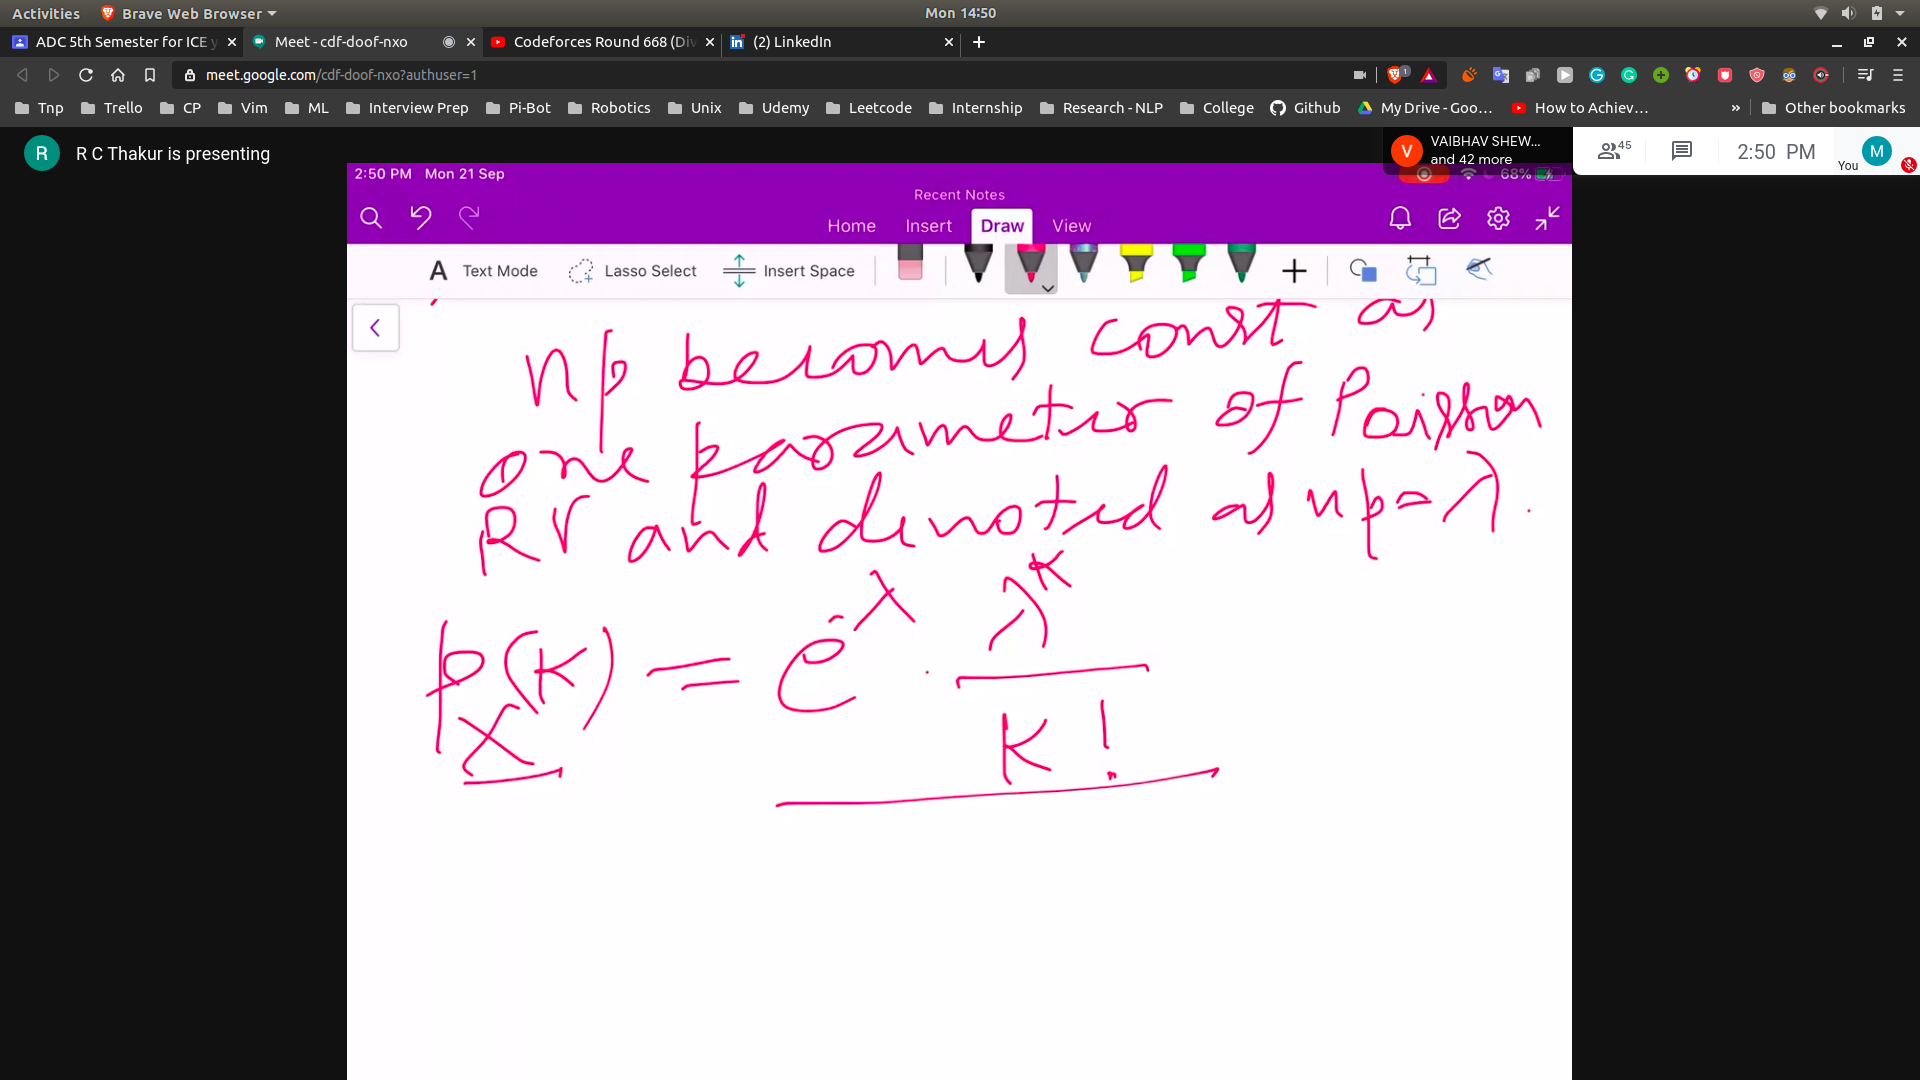 Activities Brave Web Browser Mon 14:50
ADC 5th Semester for ICE y Meet - cdf-doof-nxo Codeforces Round 668 (Div (2) LinkedIn
meet.google.com/cdf-doof-nxo?authuser=1
Tnp Trello CP Vim ML Interview Prep Pi-Bot Robotics Unix Udemy Leetcode Internship Research - NLP College Github My Drive - Goo… How to Achiev… » Other bookmarks
R R C Thakur is presenting
V VAIBHAV SHEW...
and 42 more
45 2:50 PM You M
2:50 PM Mon 21 Sep 68%
Recent Notes
Home Insert Draw View
A Text Mode Lasso Select Insert Space
np becomes const as
one parameter of Poisson
RV and denoted as np = λ.
p_X(K) = e^-λ . λ^K / K!